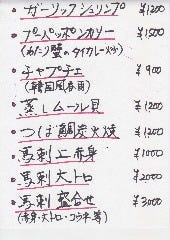 ・ガーリックシュリンプ ¥1200
・プーパッポンカリー ¥1500
(あたり蟹のタイカレー炒め)
・チャプチェ ¥900
(韓国風春雨)
・蒸しムール貝 ¥1200
・つぼ鯛炭火焼 ¥1200
・馬刺上赤身 ¥1000
・馬刺大トロ ¥2000
・馬刺盛合せ ¥3000
(赤身・大トロ・コウネ等)